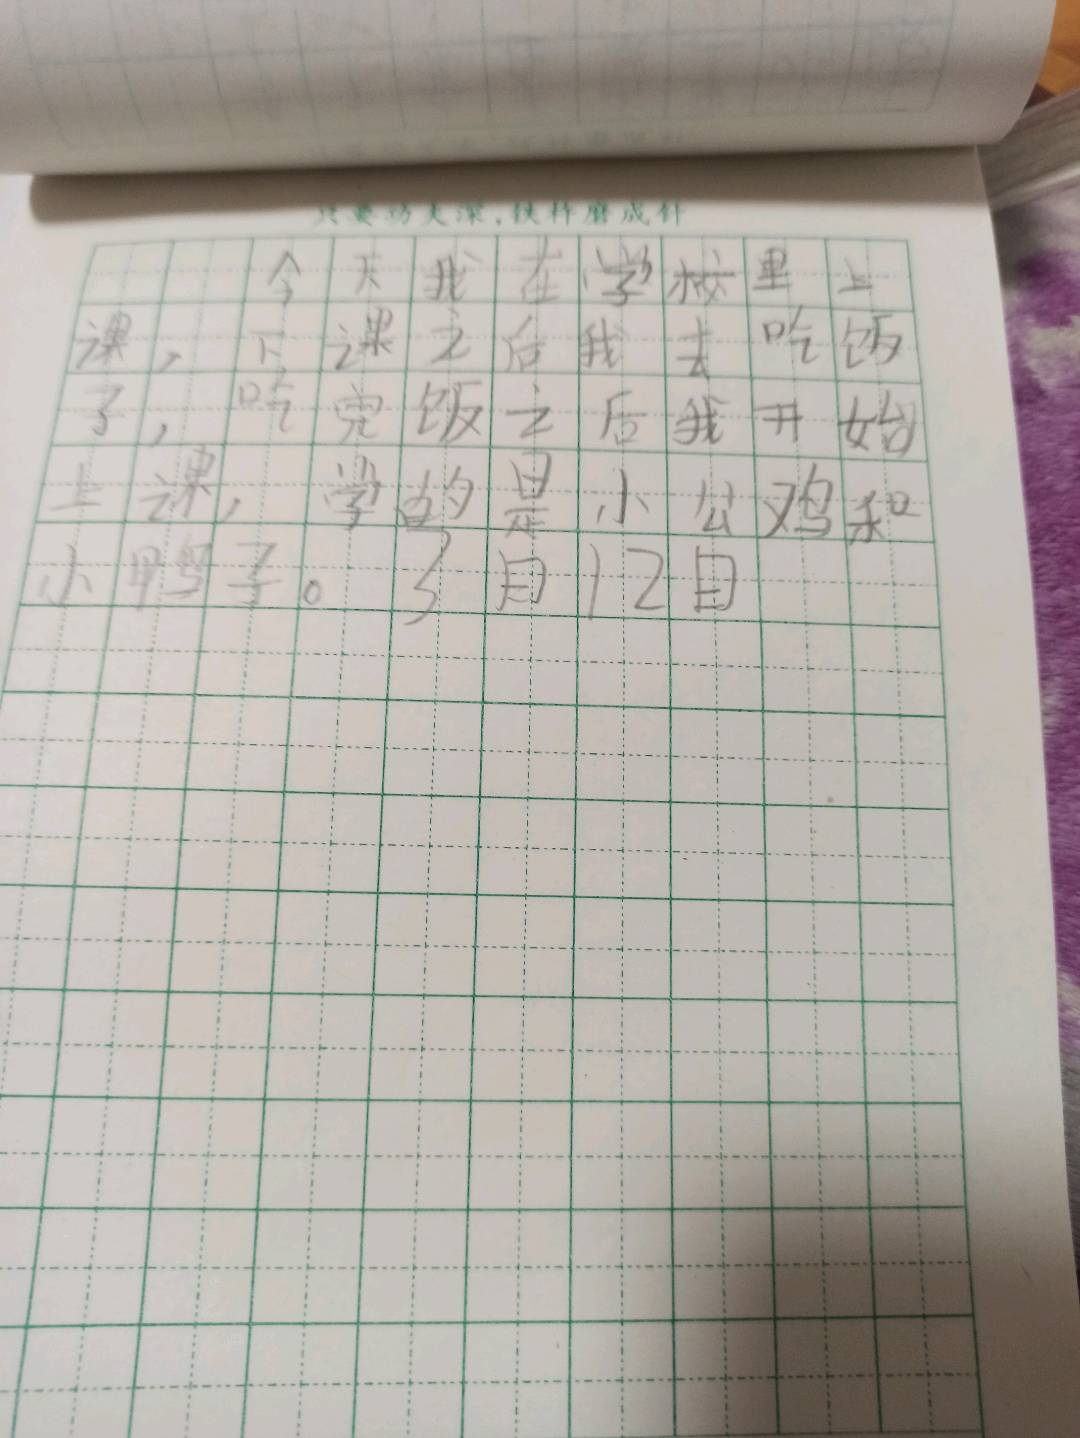 只要功夫深,铁杵磨成针
今天我在学校里上
课,下课之后我去吃饭
了,吃完饭之后我开始
上课,学的是小公鸡和
小鸭子。3月12日